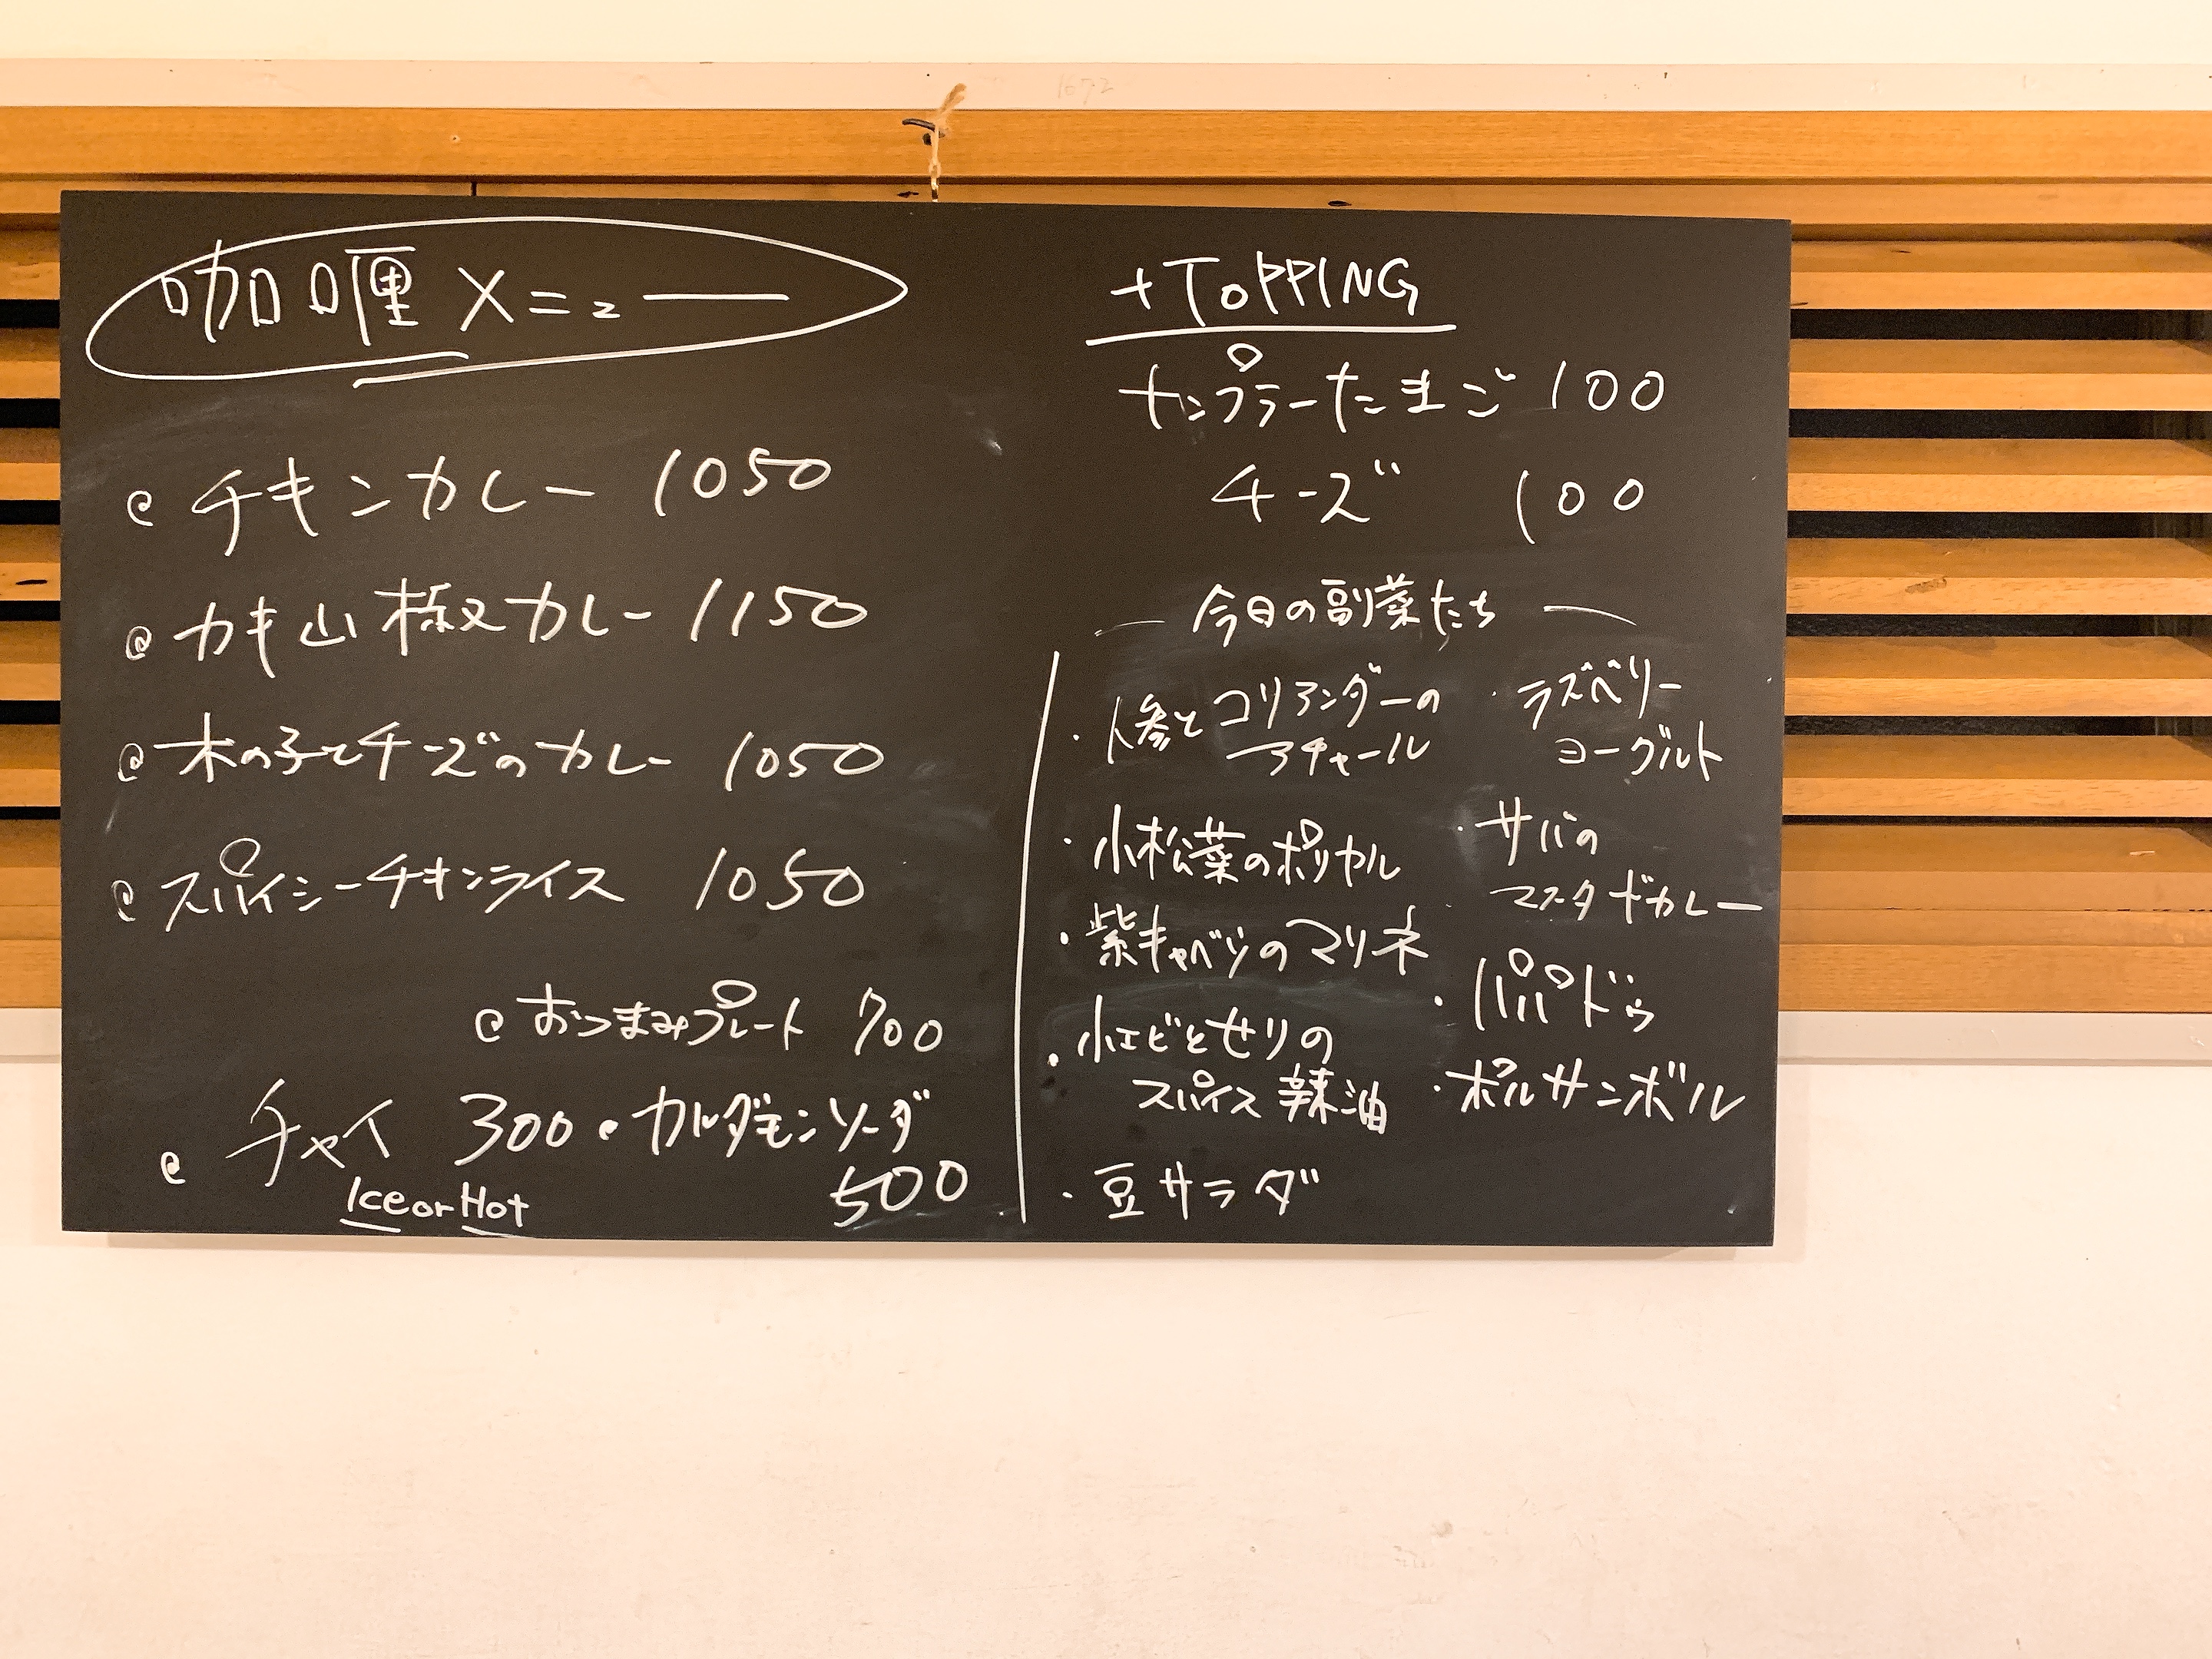 咖喱メニュー
チキンカレー 1050
カキ山椒カレー 1150
木の子とチーズのカレー 1050
スパイシーチキンライス 1050
おつまみプレート 700
チャイ 300
Ice or Hot
カルダモンソーダ
500
+TOPPING
ナンプラーたまご 100
チーズ 100
今日の副菜たち
・人参とコリアンダーの
アチャール
・小松菜のポリヤル
・紫キャベツのマリネ
・小エビとセリの
スパイス辣油
・豆サラダ
・ラズベリー
ヨーグルト
・サバの
マスタードカレー
・パパドゥ
・ポルサンボル